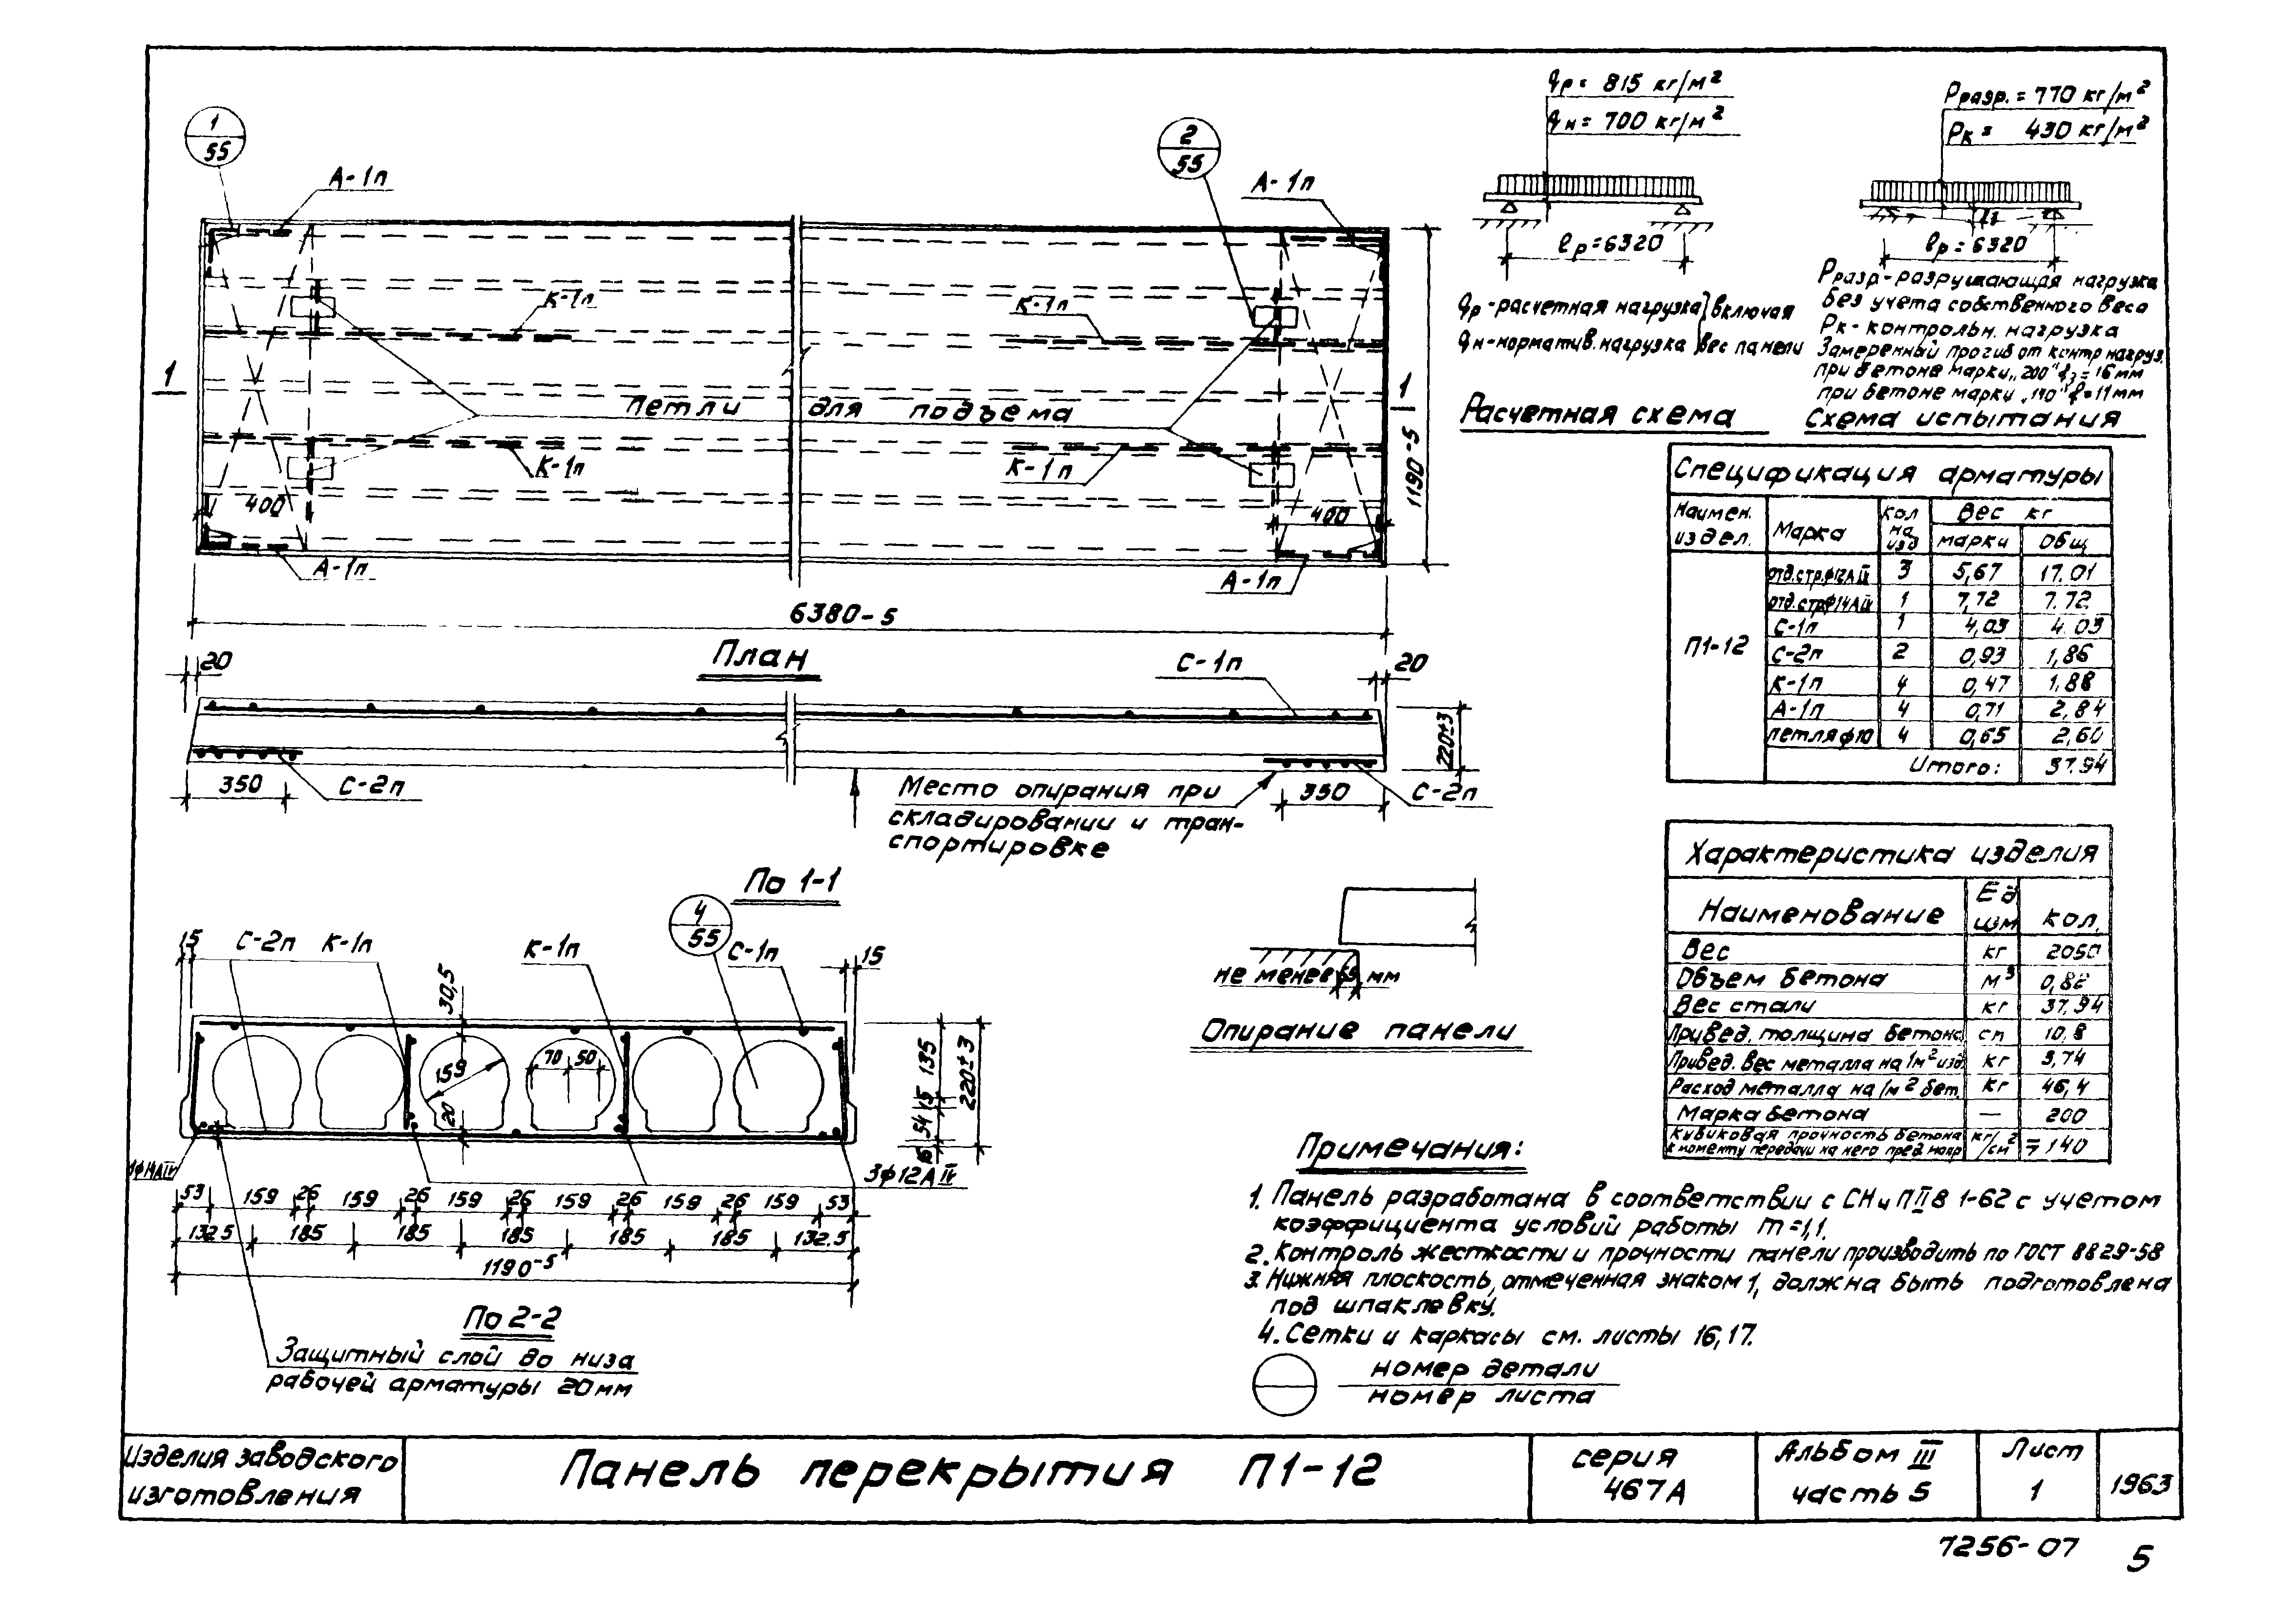 1
55
А-1п
2
55
А-1п
К-1п
К-1п
1
1
Петли для подъема
К-1п
К-1п
400
400
А-1п
А-1п
1190-5
6380-5
План
20
С-1п
20
350
С-2п
Место опирания при
складировании и тран-
спортировке
350
С-2п
220±3
По 1-1
4
55
15
С-2п К-1п
К-1п
С-1п
15
30,5
159
70
50
20
135
15
54
220±3
3ф12АIV
53 159 26 159 26 159 26 159 26 159 26 159 53
132.5 185 185 185 185 185 132.5
1190-5
По 2-2
Защитный слой до низа
рабочей арматуры 20мм
не менее мм
Опирание панели
qр= 815 кг/м2
qн= 700 кг/м2
ℓр=6320
qр-расчетная нагрузка } включая
qн-норматив.нагрузка } вес панели
Расчетная схема
Рразр.=770 кг/м2
Рк= 430 кг/м2
ℓр=6320
Рразр-разрушающая нагрузка
без учета собственного веса
Рк-контрольн. нагрузка
Замеренный прогиб от контр нагруз.
при бетоне марки „200" f=16мм
при бетоне марки „140" f=11мм
Схема испытания
Спецификация арматуры
Наимен. издел. Марка кол на изд Вес кг
марки общ
П1-12
отд.стр.ф12АIV 3 5,67 17.01
отд.стрф14АIV 1 7,72 7.72
С-1п 1 4,03 4.03
С-2п 2 0,93 1,86
К-1п 4 0,47 1.88
А-1п 4 0,71 2,84
петля ф10 4 0,65 2,60
Итого: 37.94
Характеристика изделия
Наименование Ед изм кол.
Вес кг 2050
Объем бетона м3 0,82
Вес стали кг 37.94
Привед. толщина бетона см 10,8
Привед. вес металла на 1м2 изд. кг 5,74
Расход металла на 1м2 бет. кг 46,4
Марка бетона — 200
Кубиковая прочность бетона кг/см2
к моменту передачи на него пред. напр. 140
Примечания:
1. Панель разработана в соответствии с СНиПIIВ 1-62 с учетом
коэффициента условий работы m=1,1.
2. Контроль жесткости и прочности панели производить по ГОСТ 8829-58
3. Нижняя плоскость, отмеченная знаком 1, должна быть подготовлена
под шпаклевку.
4. Сетки и каркасы см. листы 16,17.
номер детали
номер листа
Изделия заводского
изготовления
Панель перекрытия П1-12
серия
467А
Альбом III
часть 5
Лист
1
1963
7256-07
5